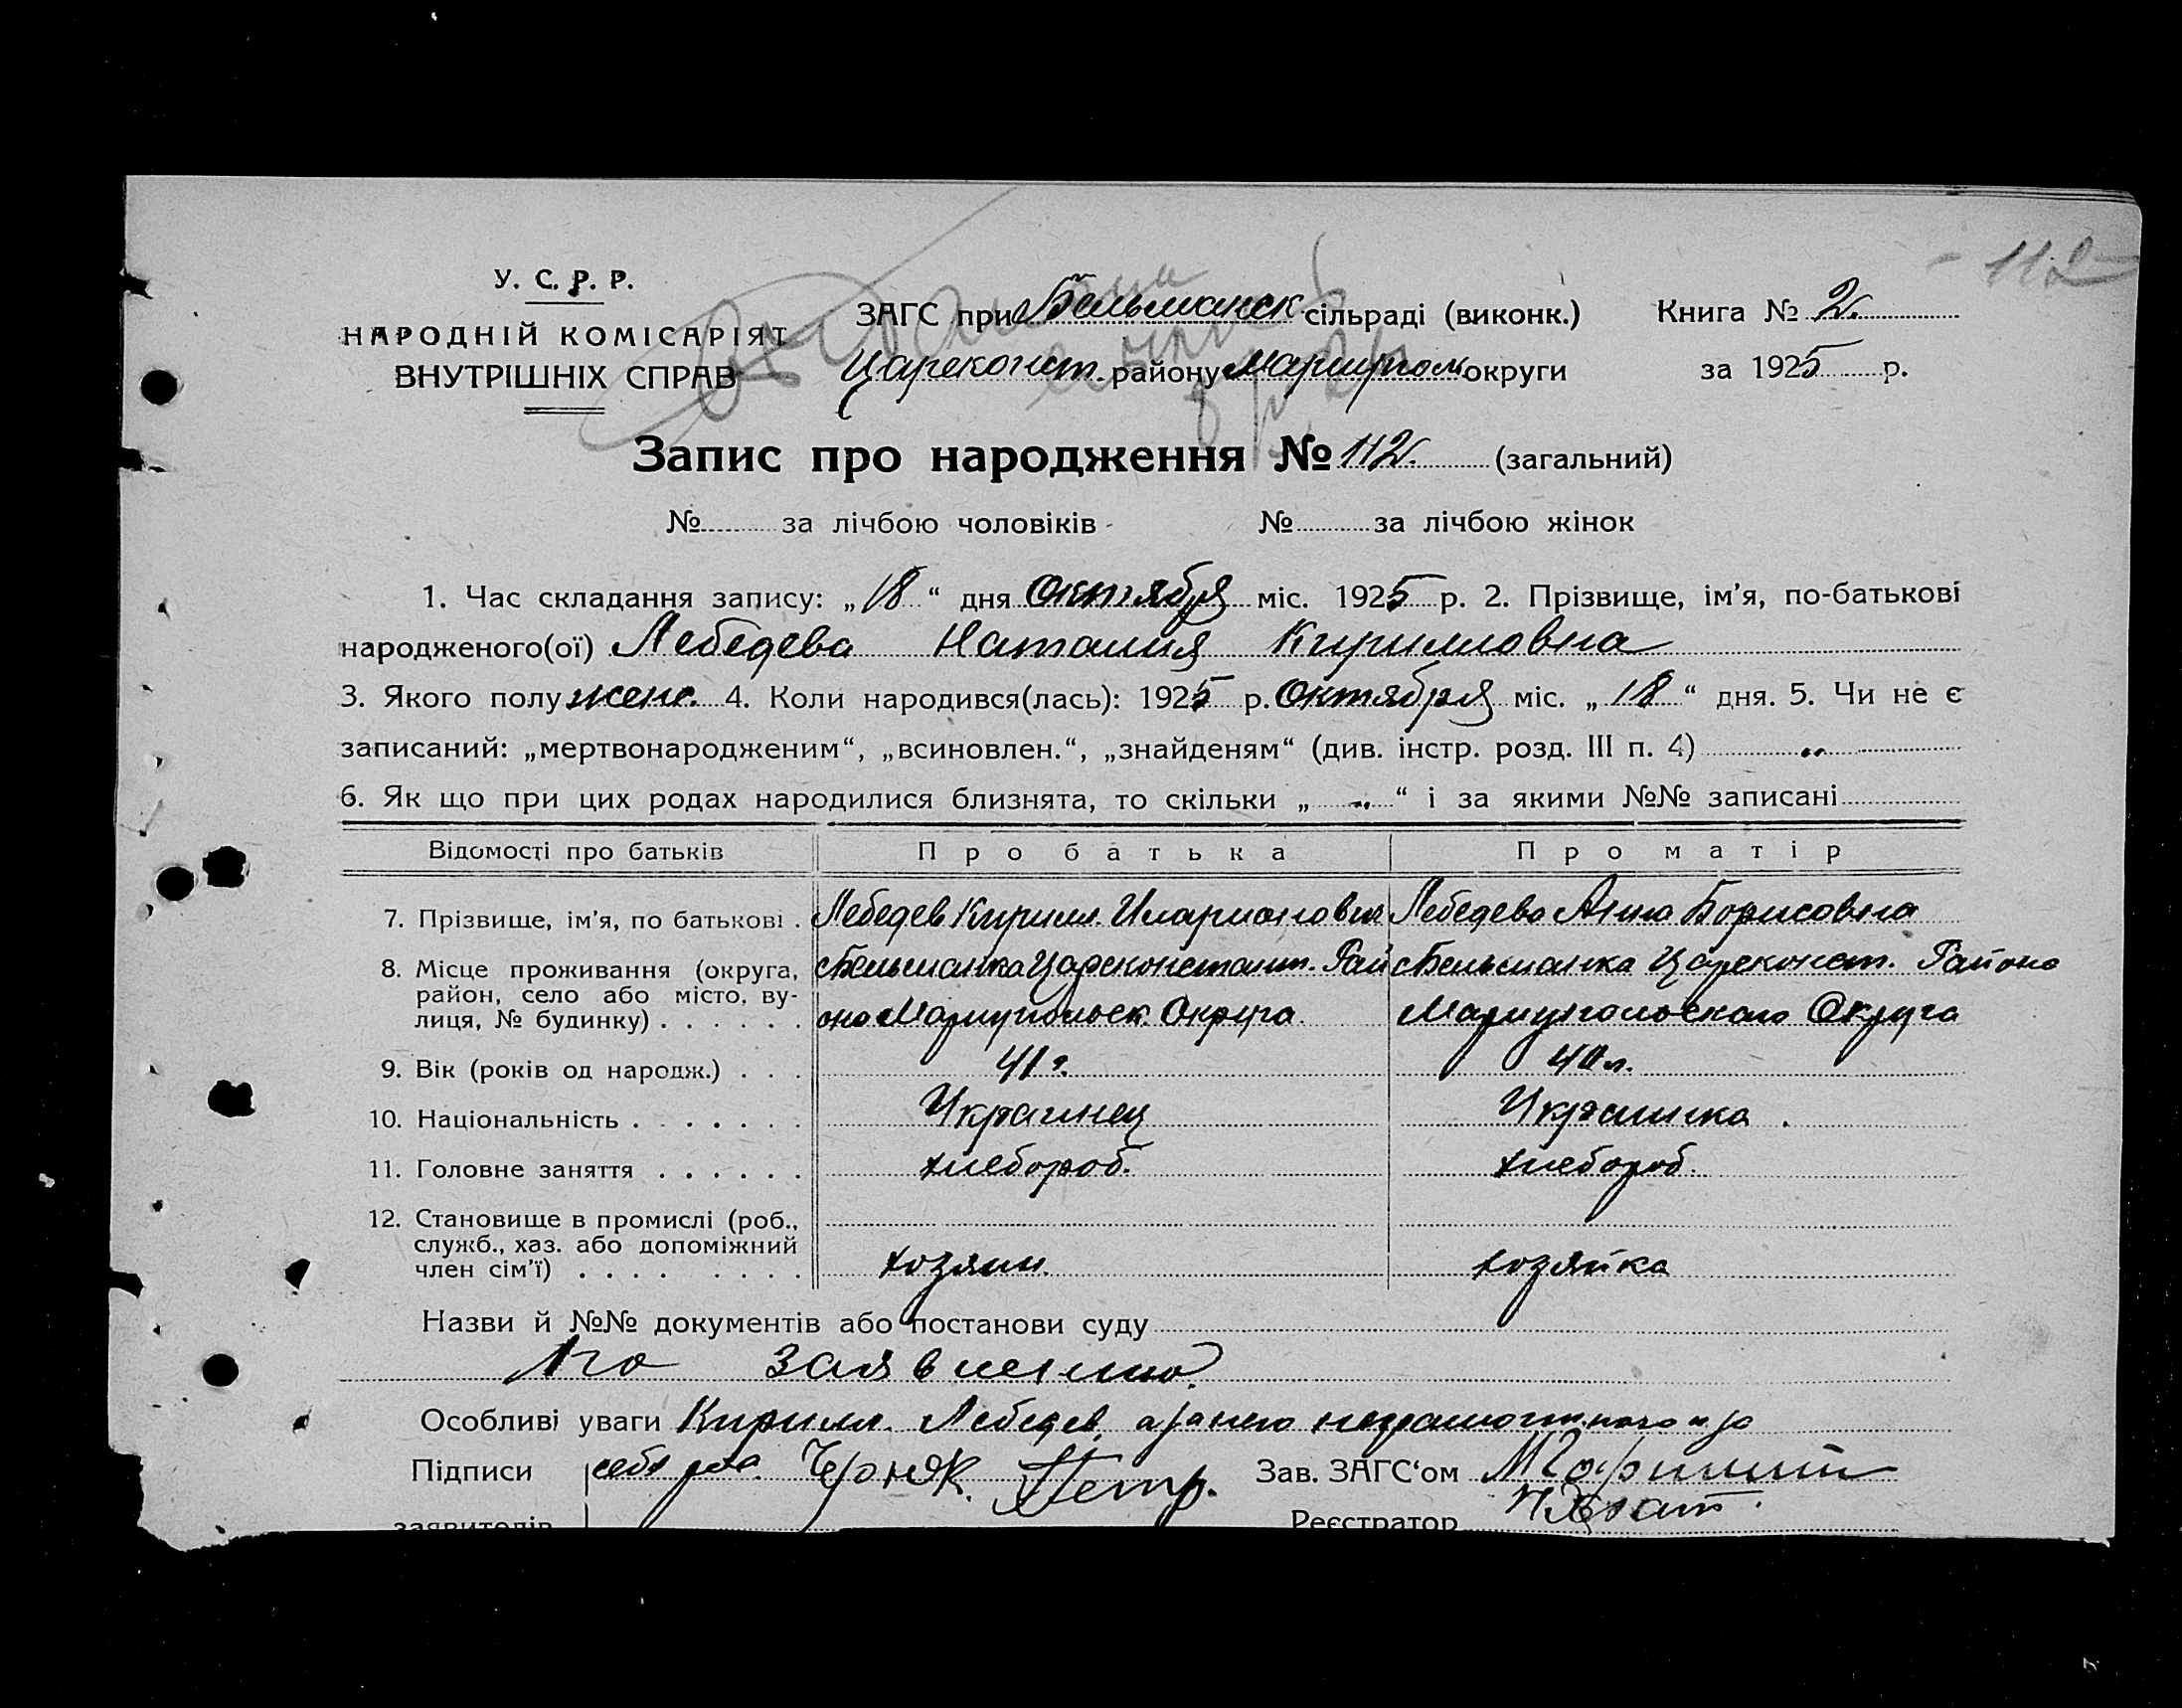 - 112
У. С. Р. Р.
НАРОДНІЙ КОМІСАРІЯТ
ВНУТРІШНІХ СПРАВ
ЗАГС при Бельманск сільраді (виконк.) Книга № 2.
Цареконст. району Мариупол округи за 1925 р.
Запис про народження № 112. (загальний)
№ за лічбою чоловіків № за лічбою жінок
1. Час складання запису: „18“ дня Октября міс. 1925 р. 2. Прізвище, ім’я, по-батькові
народженого(ої) Лебедева Наталия Кирилловна
3. Якого полу женс. 4. Коли народився(лась): 1925 р. Октября міс. „18“ дня. 5. Чи не є
записаний: „мертвонародженим“, „всиновлен.“, „знайденям“ (див. інстр. розд. III п. 4) „
6. Як що при цих родах народилися близнята, то скільки „ „ “ і за якими №№ записані
Відомості про батьків Про батька Про матір
7. Прізвище, ім’я, по батькові . Лебедев Кирилл. Иларионович Лебедева Анна Борисовна
8. Місце проживання (округа, сБельманка Цареконстант. Рай сБельманка Цареконст. Района
район, село або місто, ву-
лиця, № будинку) . . . . . . она Мариупольск. Округа Мариупольского Округа
9. Вік (років од народж.) . . . 41 г. 40 л.
10. Національність . . . . . . . Украинец Украинка .
11. Головне заняття . . . . . . хлебороб. хлебороб.
12. Становище в промислі (роб.,
служб., хаз. або допоміжний
член сім’ї) . . . . . . . . хозяин. хозяйка
Назви й №№ документів або постанови суду
По заявлению.
Особливі уваги Кирилл. Лебедев, а за него неграмотного и за
Підписи себя рос. Черняк. Петр. Зав. ЗАГС‘ом
заявителів Реєстратор